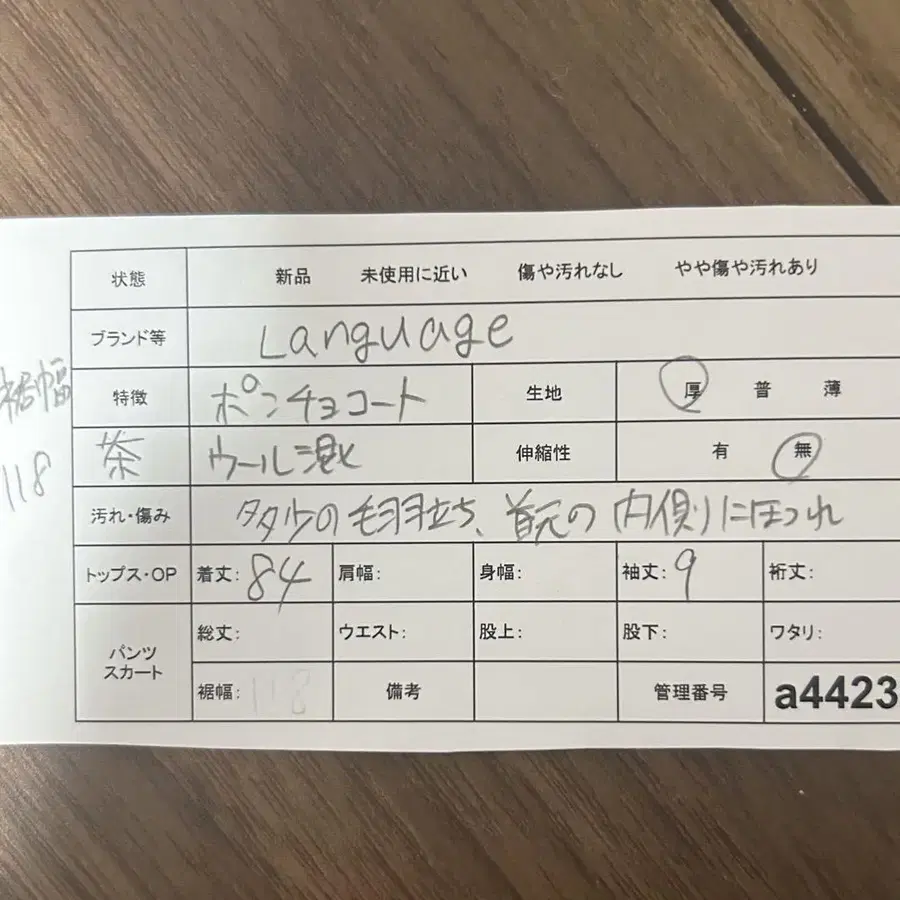 状態 新品 未使用に近い 傷や汚れなし やや傷や汚れあり
ブランド等 Language
裾幅
118
特徴 ポンチョコート 生地 厚 普 薄
茶 ウール混 伸縮性 有 無
汚れ・傷み 多少の毛羽立ち、首元の内側にほつれ
トップス・OP 着丈: 84 肩幅: 身幅: 袖丈: 9 裄丈:
パンツ スカート 総丈: ウエスト: 股上: 股下: ワタリ:
裾幅: 118 備考 管理番号 a4423